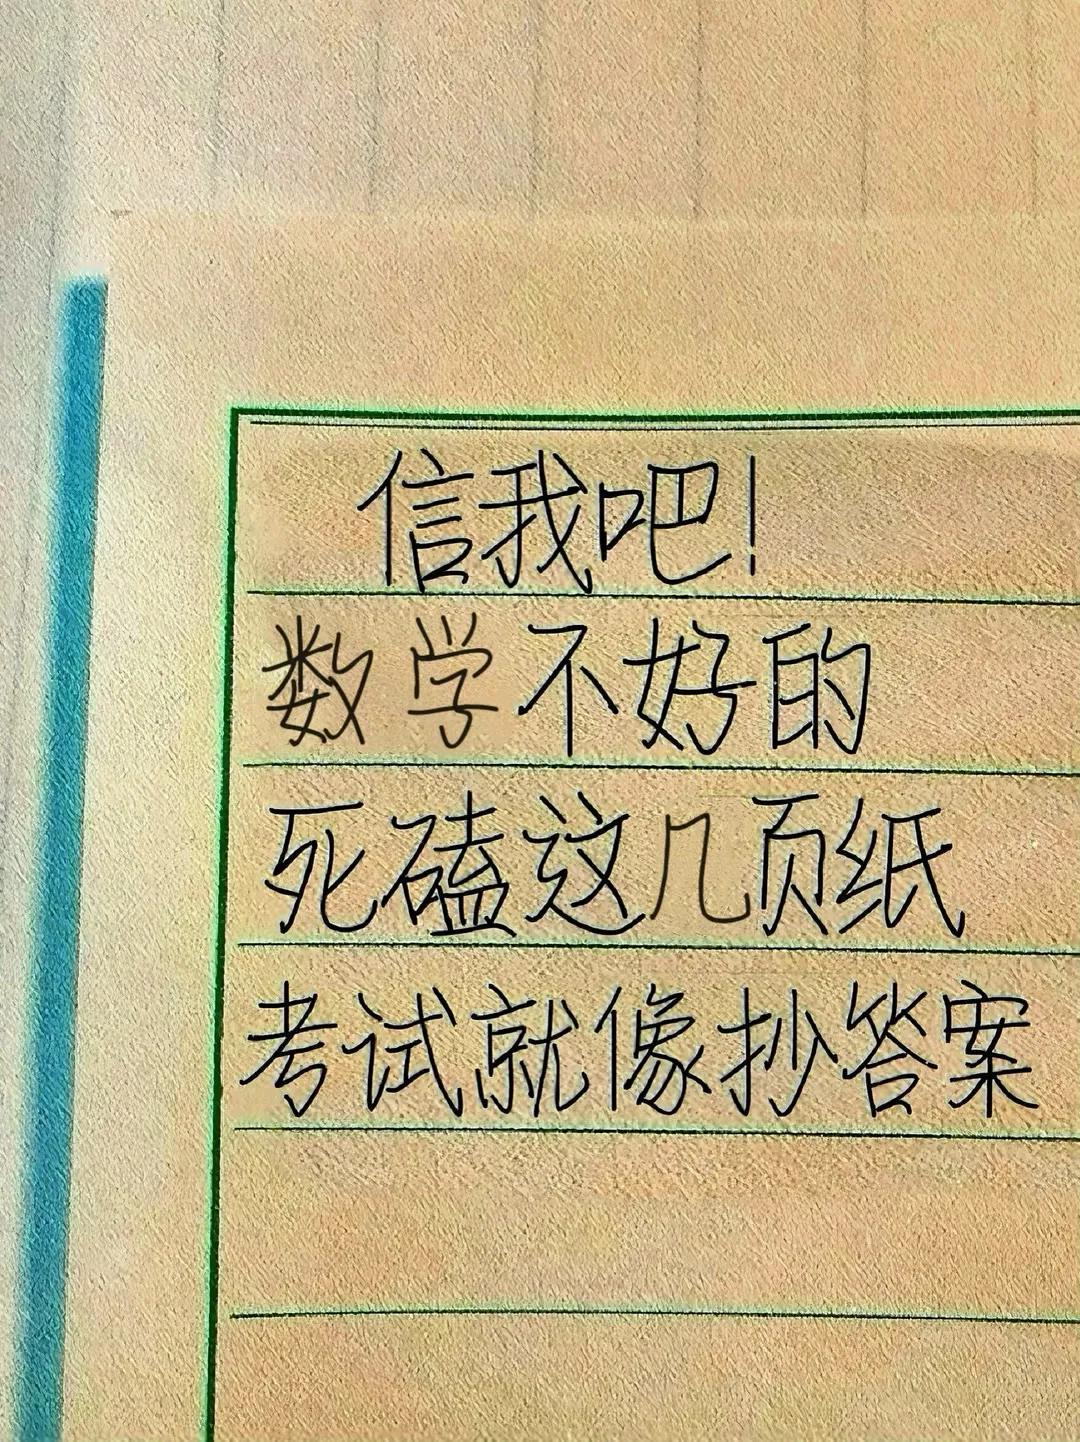 信我吧！
数学不好的
死磕这几页纸
考试就像抄答案